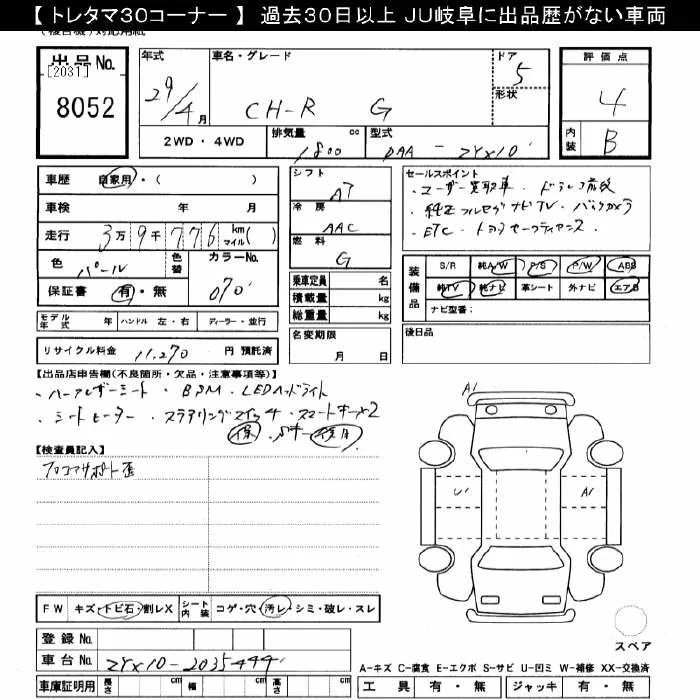 【 トレタマ30コーナー 】 過去30日以上 JU岐阜に出品歴がない車両
出品No.
[2031]
8052
年式
29/4月
車名・グレード
CH-R G
ドア
5
形状
2WD ・ 4WD
排気量 cc
1800
型式
DAA - ZYX10
評価点
4
内装
B
車歴 自家用・( )
車検 年 月
走行 3万9千776 km マイル( )
色 パール
色替
カラーNo.
070
保証書 有・無
シフト
AT
冷房
AAC
燃料
G
乗車定員 名
積載量 kg
総重量 kg
セールスポイント
・ユーザー買取車 ・ドラレコ前後
・純正フルセグナビTV ・バックカメラ
・ETC ・トヨタセーフティセンス
装備品
S/R 純A/W P/S P/W ABS
純TV 純ナビ 革シート 外ナビ エアB
ナビ型番：
モデル年式 年 ハンドル 左・右 ディーラー・並行
名変期限
月 日
後日品
リサイクル料金 11,270 円 預託済
【出品店申告欄(不良箇所・欠品・注意事項等)】
・ハーフレザーシート ・BSM ・LEDヘッドライト
・シートヒーター ・ステアリングスイッチ ・スマートキーx2
【検査員記入】
フロコアサポート歪
A1
U1
A1
FW キズ・トビ石・割レX
シート内装 コゲ・穴・汚レ・シミ・破レ・スレ
登録No.
車台No. ZYX10-2035444
車庫証明用 長さ cm 幅 cm 高さ cm
スペア
A-キズ C-腐食 E-エクボ S-サビ U-凹ミ W-補修 XX-交換済
工具 有・無 ジャッキ 有・無